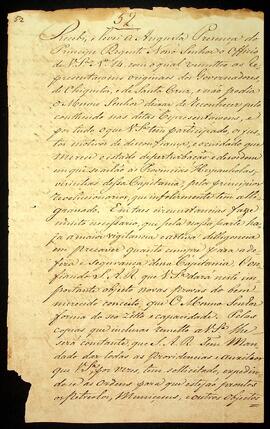 52
52
Recebi, e levei á Augusta Presença do
Principe Regente Nosso Senhor o Officio
de V. S.ª N.º 74 com o qual remetteo as Re-
presentaçoens originaes dos Governadores,
de Chiquitos, e de Santa Cruz, e não podia
o Mesmo Senhor deixar de reconhecer pelo
contheudo nas ditas Representaçoens, e
por tudo o que V. S.ª tem participado, os jus-
tos motivos de desconfiança, e o cuidado que
merece o estado de perturbação e desordem
em que se achão as Provincias Hespanholas,
vizinhas dessa Capitania, pelos principios
revolucionarios, que infelizmente tem alli
grassado. Em taes circunstancias faz-se
muito necessario, que pela nossa parte ha-
ja a maior vigilancia, e activa diligencia
em precaver quanto cumpre para a de-
feza e segurança dessa Capitania. Con-
fiando S. A. R. que V. S.ª dará neste im-
portante objecto novas provas do bem
merecido conceito, que O Mesmo Senhor
forma do seu zello e capacidade. Pelas
copias que inclusas remetto a V. S.ª lhe
será constante, que S. A. R. Tem Man-
dado dar todas as providencias e auxilios
que V. S.ª por vezes tem sollicitado, expedin-
do-se as Ordens para que estejão promptos
os Petrechos, Municoens, e outros Objectos